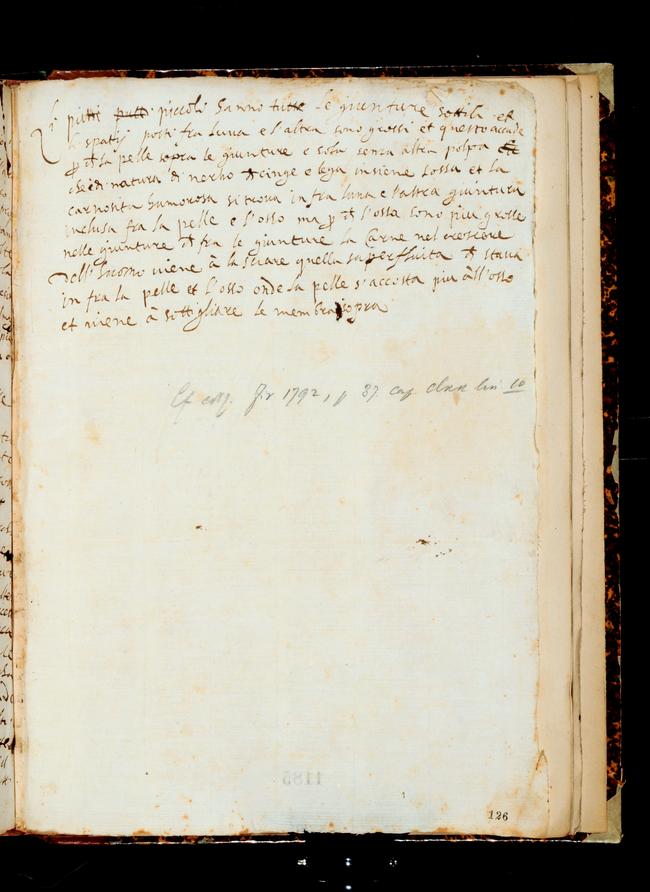 Li putti putti piccoli hanno tutte le giunture sottili et
li spatij posti fra luna e l'altra sono grossi et questo accade
p ch la pelle sopra le giunture e sola senza altra polpa
che di natura di nerho ch cinge e lega insieme l'ossa et la
carnosita humorosa si trova in fra luna e l'altra giuntura
inclusa fra la pelle e l'osso ma p ch l'ossa sono piu grosse
nelle giunture ch fra le giunture la Carne nel crescere
dell'huomo viene à lasciare quella superfluita ch stava
in fra la pelle et l'osso onde la pelle s'accosta piu all'osso
et viene à sottigliare le membra sopra
Cf. 1792, p 37 cap clxx lin 10
1185
126